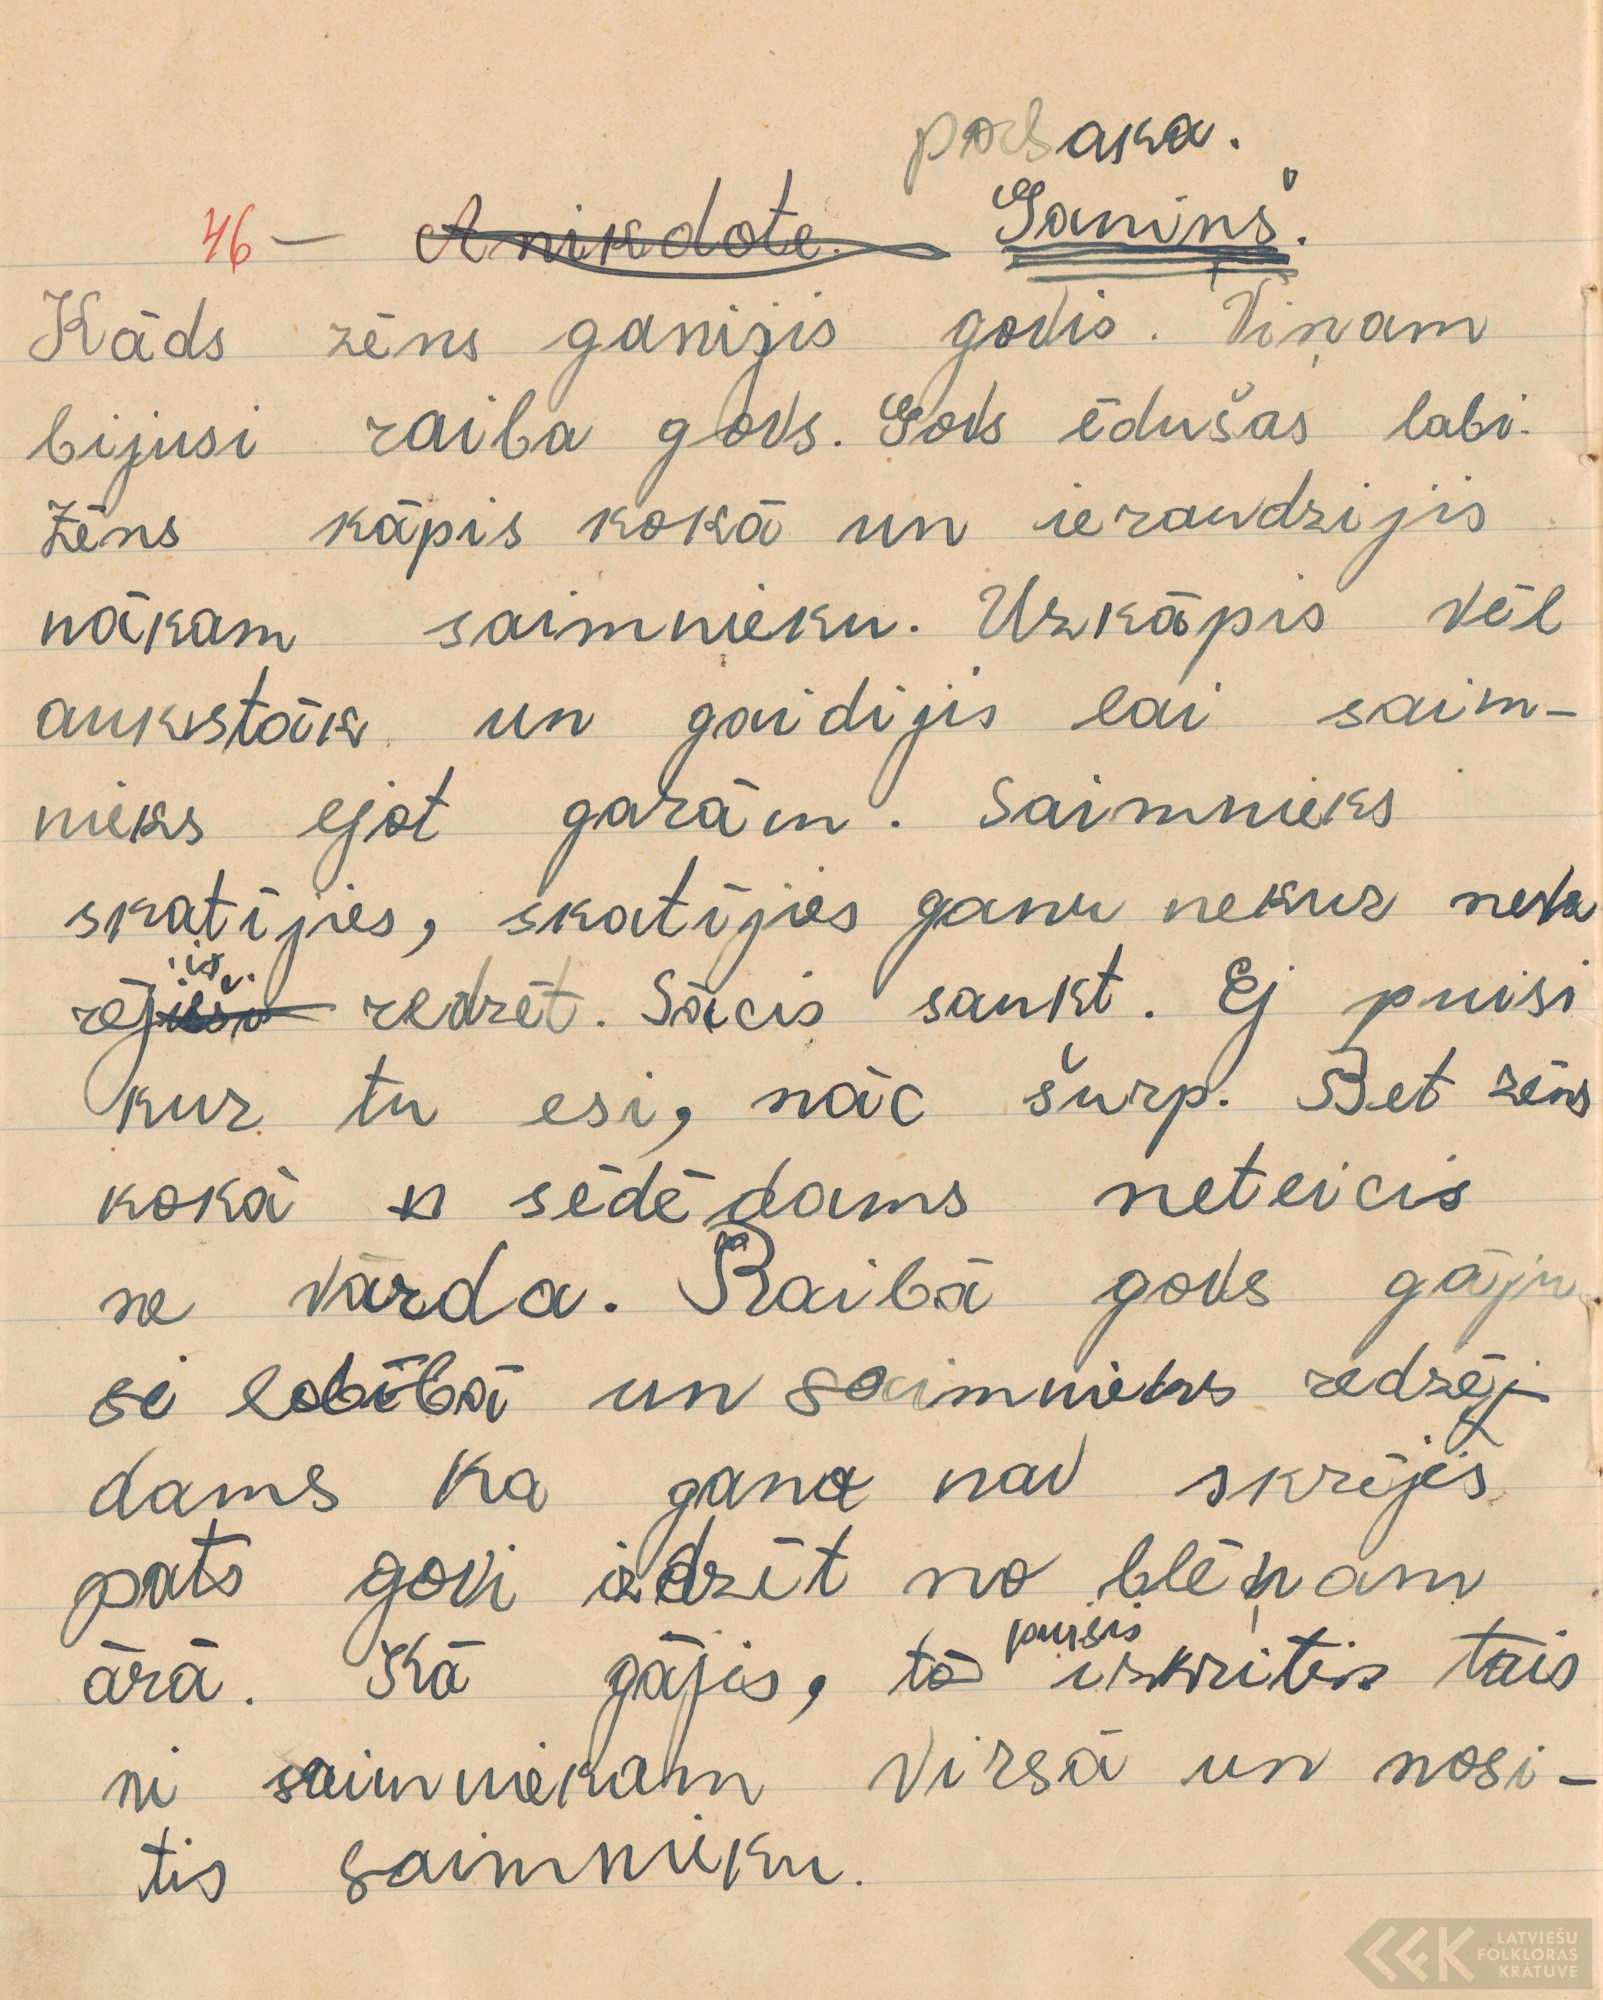 pasaka.
46 — Anikdote. Ganiņš.
Kāds zēns ganijis govis. Viņam
bijusi raiba govs. Govs ēdušas labi.
Zēns kāpis kokā un ieraudzijis
nākam saimnieku. Uzkāpis vēl
aukstāk un gaidijis lai saim-
nieks ejot garām. Saimnieks
skatījies, skatījies ganu nekur neva
rējis redzēt. Sācis saukt. Ej puisi
kur tu esi, nāc šurp. Bet zēns
kokā sēdēdams neteicis
ne vārda. Raibā govs gāju
si labībā un saimnieks redzēj-
dams ka gana nav skrējis
pats govi izdzīt no blēņam
ārā. Kā gājis, tā puisis izkritis tais
ni saimniekam virsā un nosi-
tis saimnieku.
LATVIEŠU
FOLKLORAS
KRĀTUVE